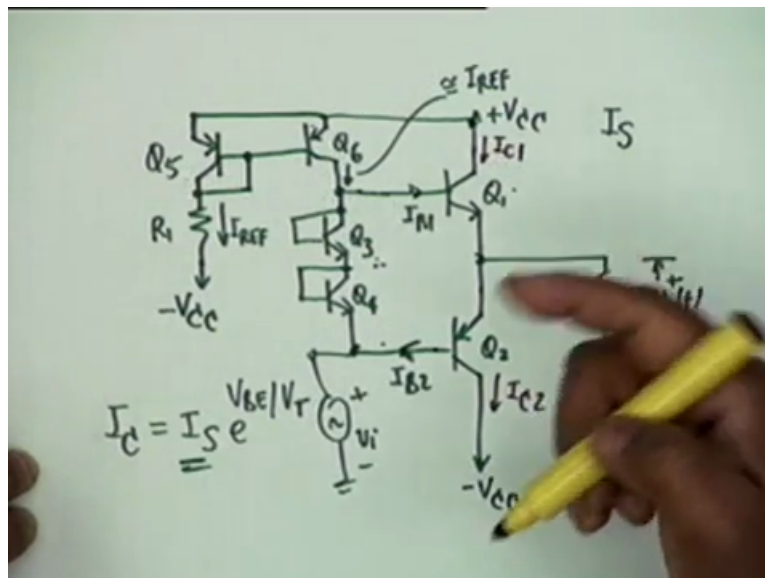 ≃ IREF
+VCC
IS
Q5
Q6
IC1
Q1
R1
IREF
IB1
Q3
Q4
-VCC
Q2
IB2
IC2
IC = IS e^VBE/VT
+
vi
-
-VCC